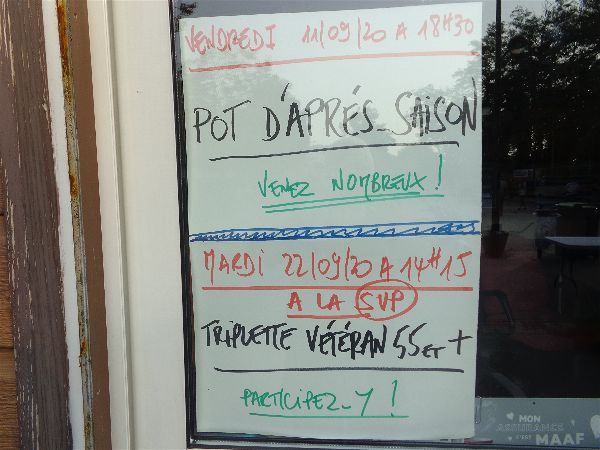 VENDREDI 11/09/20 A 18H30
POT D'APRÉS-SAISON
VENEZ NOMBREUX !
MARDI 22/09/20 A 14H15
A LA SVP
TRIPLETTE VÉTÉRAN 55 ET +
PARTICIPEZ-Y !
MON
ASSURANCE
C'EST MAAF